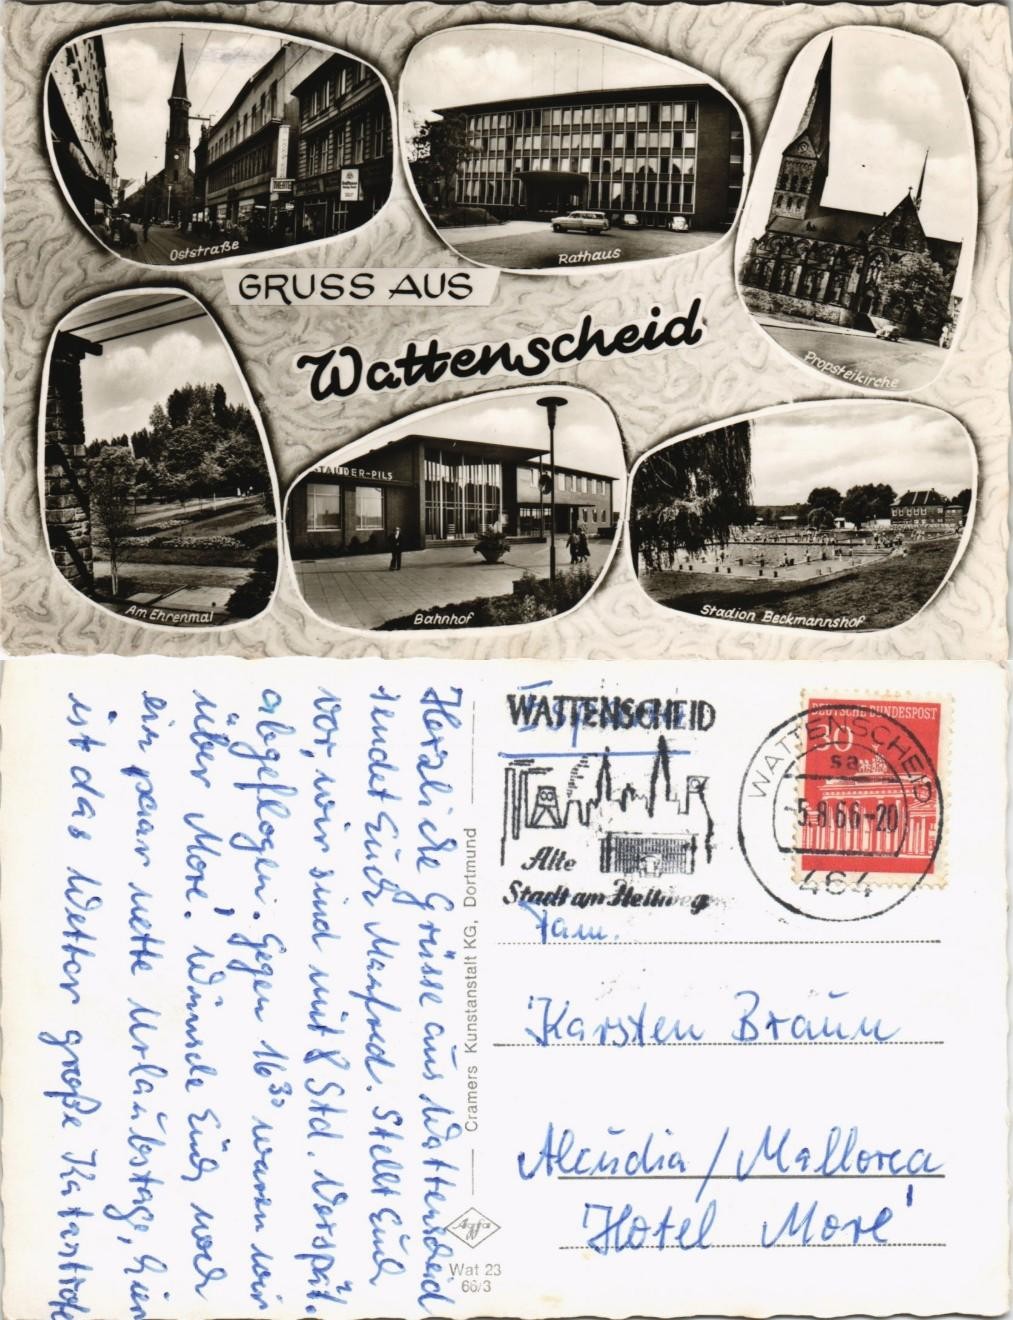 Oststraße
THEATER
Rathaus
Propsteikirche
GRUSS AUS
Wattenscheid
Am Ehrenmal
STAUDER-PILS
Bahnhof
Stadion Beckmannshof
Herzliche Grüsse aus Wattenscheid
sendet Euch Manfred. Stellt Euch
vor, wir sind mit 8 Std. Verspät.
abgeflogen. Gegen 16³⁰ waren wir
über Moré. Wünsche Euch noch
ein paar nette Urlaubstage, hier
ist das Wetter große Katastrofe
Cramers Kunstanstalt KG, Dortmund
Agfa
Wat 23
66/3
WATTENSCHEID
Alte
Stadt am Hellweg
DEUTSCHE BUNDESPOST
30
WATTENSCHEID
sa
-5.8.66-20
464
Fam.
Karsten Braun
Alcudia / Mallorca
Hotel Moré